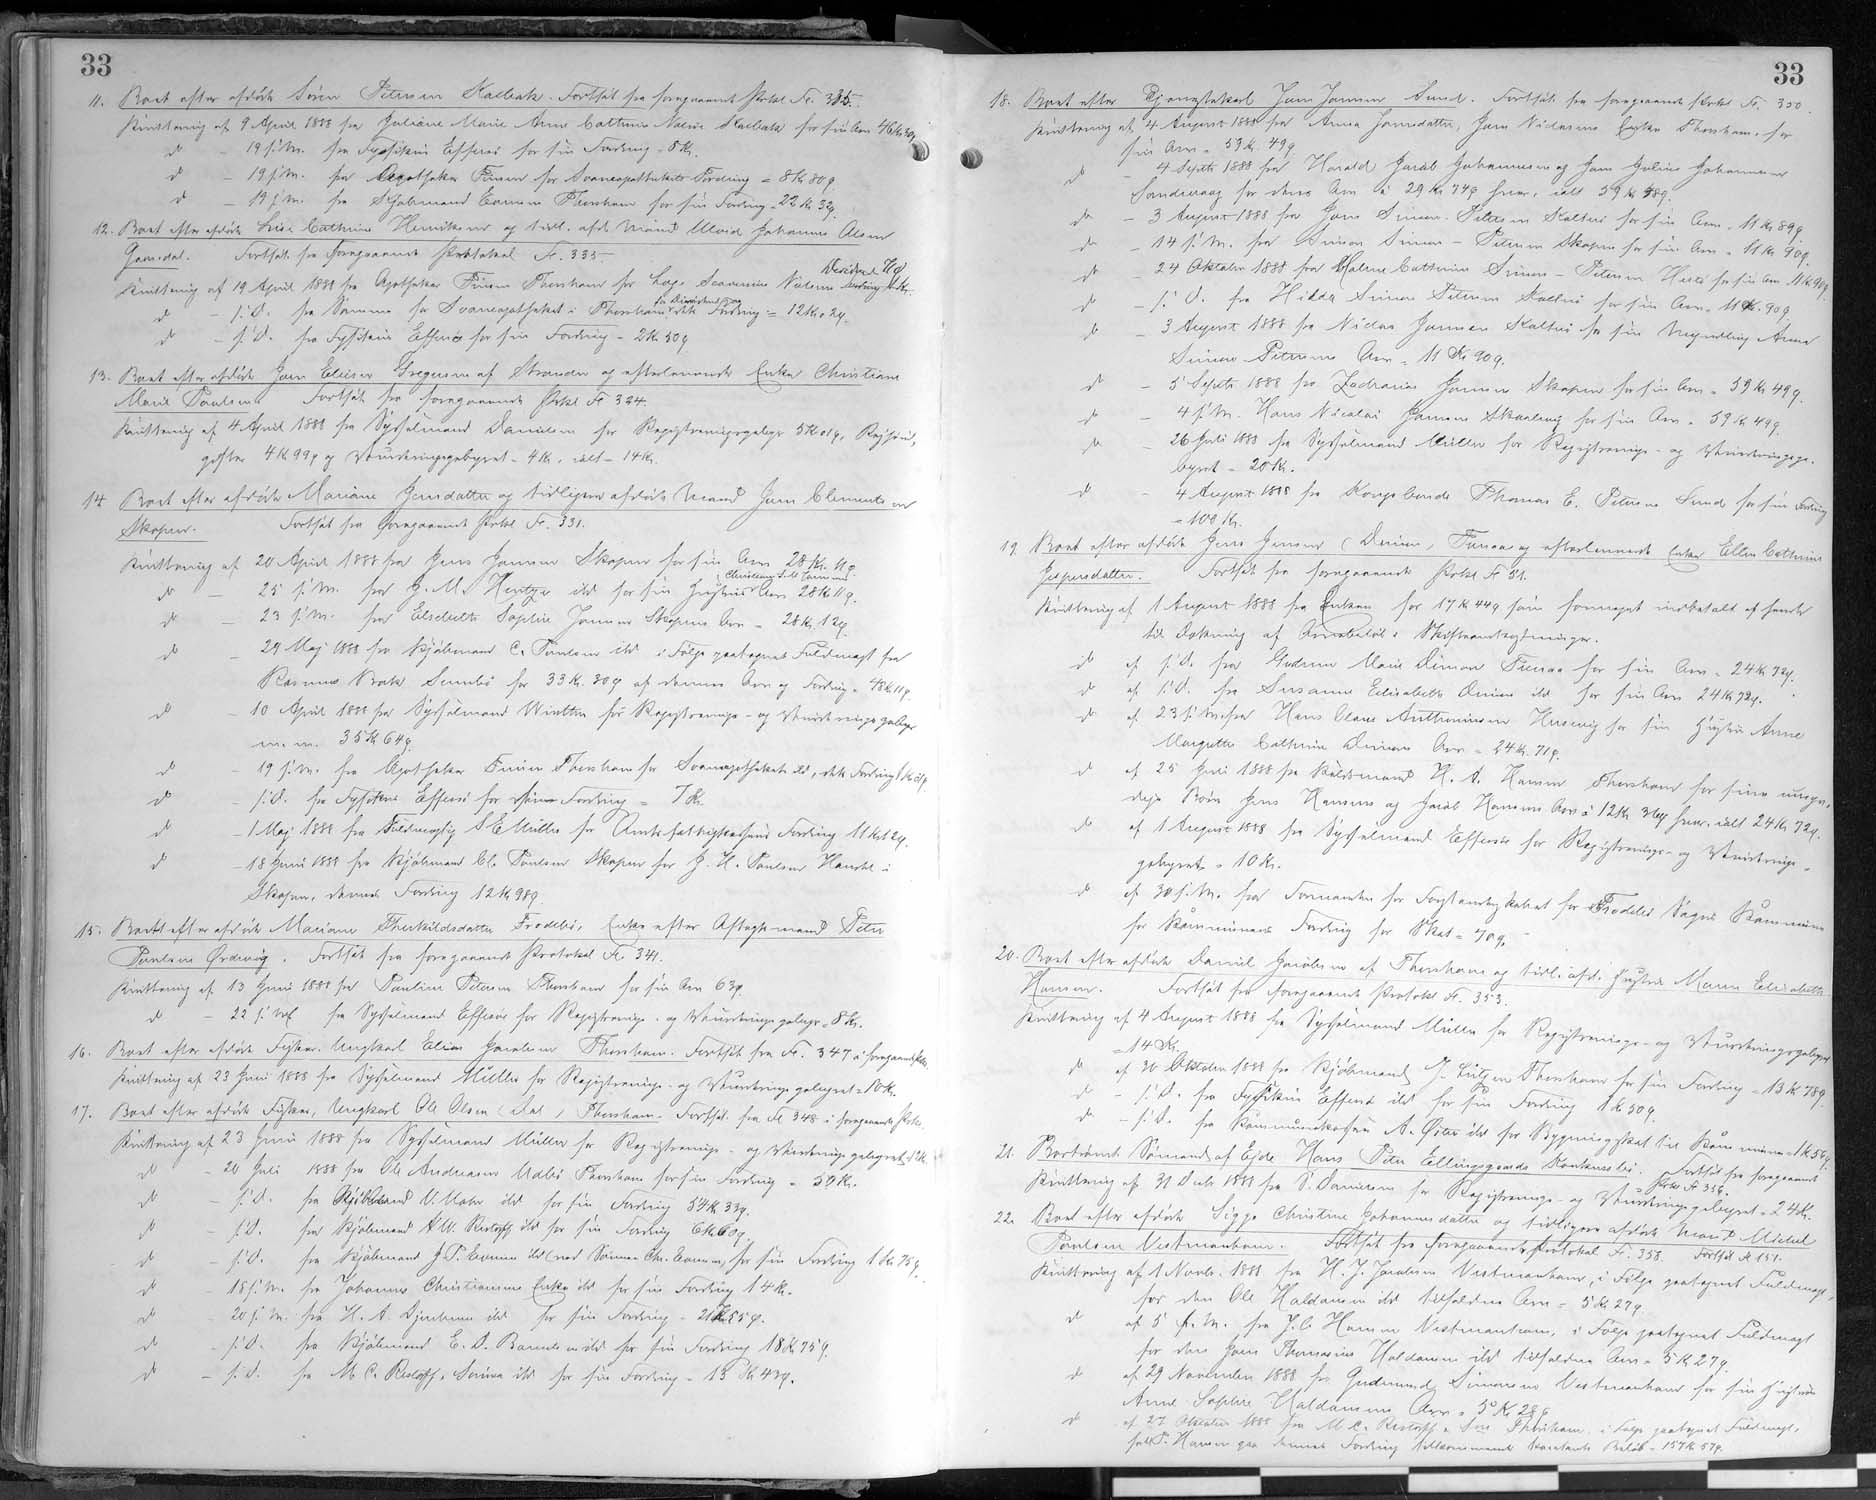 33
11. Boet efter afdøde Sören Petersen Kalbak. Fortsat fra foregaaende Prtkl Fo. 335.
Kvittering af 9 April 1888 fra Juliane Marie Anne Cathrine Kalbak for sin Arv 46 Kr 30 ø
do - 19 s. M. fra Fysikus Effersö for sin Fordring - 8 Kr.
do - 19 s. M. fra Apotheker Finsen for Svaneapothekets Fordring = 8 Kr 80 ø
do - 19 s. M. fra Kjøbmand Thorshavn for sin Fordring - 22 Kr 32 ø.
12. Boet efter afdøde Lise Cathrine Henriksen og tidl. afd. Mand Johannes Olsen
Gamedal. Fortsat fra foregaaende Protokol Fo. 335
Kvittering af 19 April 1888 fra Apotheker Finsen Thorshavn for
do - s. D. fra Samme for Svaneapotheket i Thorshavn Fordring = 12 Kr 02 ø.
do - s. D. fra Fysikus Effersö for sin Fordring - 2 Kr 50 ø
13. Boet efter afdøde Joen Elieser Gregersen af Strænder og efterlevende Enke Christiane
Marie Poulsen. Fortsat fra foregaaende Prtkl Fo 324.
Kvittering af 4 April 1888 fra Sysselmand Danielsen for Registreringsgebyr 5 Kr 01 ø,
4 Kr 99 ø og Vurderingsgebyret - 4 Kr, ialt - 14 Kr.
14. Boet efter afdøde Mariane Jensdatter og tidligere afdøde Mand Joen Clementsen
Skopen. Fortsat fra foregaaende Prtkl Fo. 331.
Kvittering af 20 April 1888 fra Jens Joensen Skopen for sin Arv 28 Kr. 11 ø.
do - 25 s. M. fra J. M. Hentze ibd for sin Hustrus Arv 28 Kr 11 ø.
do - 23 s. M. fra Elsebeth Sophie Joensen Skopens Arv - 28 Kr. 12 ø.
do - 29 Maj 1888 fra Kjøbmand C. Poulsen ibd i Følge paategnet Fuldmagt fra
Rasmus Bæk Sumbö for 33 Kr. 30 ø af dennes Arv og Fordring - 48 Kr 11 ø.
do - 10 April 1888 fra Sysselmand Winther for Registrerings- og Vurderingsgebyr
m. m. 35 Kr 64 ø
do - 19 s. M. fra Apotheker Finsen Thorshavn for Svaneapotheket ibd, dets Fordring
do - s. D. fra Fysikus Effersö for sin Fordring = 7 Kr.
do - 1 Maj 1888 fra Fuldmægtig S E Müller for Amtsfattigkassens Fordring 11 Kr 12 ø.
do - 18 Juni 1888 fra Kjøbmand Cl. Poulsen Skopen for J. H. Poulsens Handel i
Skopen, dennes Fordring 12 Kr 98 ø.
15. Boet efter afdøde Mariane Therkildsdatter Frodebö, Enke efter Aftægtsmand Peter
Poulsen Ördevig. Fortsat fra foregaaende Protokol Fo. 341.
Kvittering af 13 Juni 1888 fra Pauline Petersen Thorshavn for sin Arv 63 ø.
do - 22 s. M. fra Sysselmand Effersöe for Registrerings- og Vurderingsgebyr - 8 Kr.
16. Boet efter afdøde Fisker, Ungkarl Elias Jacobsen Thorshavn. Fortsat fra Fo. 347 i foregaaende Prtkl.
Kvittering af 23 Juni 1888 fra Sysselmand Müller for Registrerings- og Vurderingsgebyret - 10 Kr.
17. Boet efter afdøde Fisker, Ungkarl Ole Olsen (Dal) Thorshavn. Fortsat fra Fo 348 i foregaaende Prtkl.
Kvittering af 23 Juni 1888 fra Sysselmand Müller for Registrerings- og Vurderingsgebyret 12 Kr.
do - 20 Juli 1888 fra Ole Andreasen Thorshavn for sin Fordring - 50 Kr.
do - s. D. fra Kjøbmand ibd for sin Fordring 54 Kr 33 ø.
do - s. D. fra Kjøbmand M. W. Restorff ibd for sin Fordring 6 Kr 60 ø.
do - s. D. fra Kjøbmand ibd for sin Fordring 1 Kr 75 ø.
do - 18 s. M. fra Johannes Christiansens Enke ibd for sin Fordring 14 Kr.
do - 20 s. M. fra H. A. Djurhuus ibd for sin Fordring - 21 Kr 85 ø.
do - s. D. fra Kjøbmand ibd for sin Fordring 18 Kr 75 ø.
do - s. D. fra M. C. Restorff & Sønner ibd for sin Fordring - 13 Kr 43 ø.
33
18. Boet efter Tjenestekarl Joen Joensen Sund. Fortsat fra foregaaende Prtkl Fo. 350.
Kvittering af 4 August 1888 fra Anna Joensdatter, Joen Enke Thorshavn for
sin Arv - 59 Kr. 49 ø
do - 4 Septbr 1888 fra Harald Jacob Johannesen og Joen Julius Johannesen
Sandevaag for deres Arv à 29 Kr 74 ø hver, ialt 59 Kr 48 ø.
do - 3 August 1888 fra Joen Simon Petersen Kaltbak for sin Arv - 11 Kr 89 ø.
do - 14 s. M. fra Simon Simon-Petersen Skopen for sin Arv - 11 Kr 90 ø.
do - 24 Oktober 1888 fra Malene Cathrine Simon-Petersen for sin Arv 11 Kr 90 ø.
do - s. D. fra Hilda Simon Petersen for sin Arv - 11 Kr. 90 ø
do - 3 August 1888 fra Niclas Joensen for sin Myndling Anna
Simon Petersens Arv - 11 Kr 90 ø.
do - 5 Septbr 1888 fra Zacharias Joensen Skopen for sin Arv - 59 Kr 49 ø.
do - 4 s. M. Hans Nicolai Joensen for sin Arv - 59 Kr 49 ø
do - 26 Juli 1888 fra Sysselmand Müller for Registrerings- og Vurderingsge-
byret - 20 Kr.
do - 4 August 1888 fra Kongsbonde Thomas E. Petersen Sund for sin Fordring
- 100 Kr.
19. Boet efter afdøde Jens Jensen (Dimon) Famien og efterlevende Enke Ellen Cathrine
Jespersdatter. Fortsat fra foregaaende Prtkl Fo 51.
Kvittering af 1 August 1888 fra Enken for 17 Kr 44 ø som formeget indbetalt af hende
til Dækning af Arvebeløb & Skifteomkostninger.
do af s. D. fra Gudrun Marie Dimon for sin Arv - 24 Kr 72 ø.
do af s. D. fra Susanne Elisabeth Dimon ibd for sin Arv 24 Kr 72 ø.
do af 23 s. M. fra Hans Olave Anthoniussen for sin Hustru Anne
Margrethe Cathrine Dimons Arv - 24 Kr. 71 ø.
do af 25 Juni 1888 fra H. A. Hansen Thorshavn for sine umyn-
dige Børn Jens Hansens og Jacob Hansens Arv à 12 Kr 36 ø hver, ialt 24 Kr 72 ø.
do af 1 August 1888 fra Sysselmand Effersöe for Registrerings- og Vurderings-
gebyret - 10 Kr.
do af 30 s. M. fra Formanden for Forstanderskabet for Frodebö Sogns Kommune
for Kommunens Fordring for Skat - 70 ø.
20. Boet efter afdøde Daniel Jacobsen af Thorshavn og tidl. afd. Hustru Maren Elisabeth
Hansen. Fortsat fra foregaaende Protokol Fo. 353.
Kvittering af 4 August 1888 fra Sysselmand Müller for Registrerings- og Vurderingsgebyret
- 14 Kr.
do af 30 Oktober 1888 fra Kjøbmand J. Lützen Thorshavn for sin Fordring - 13 Kr 78 ø.
do - s. D. fra Fysikus Effersö ibd for sin Fordring 1 Kr 50 ø.
do - s. D. fra Kommunekasserer A. ibd for Bygningsskat til Kommunen - 1 Kr 56 ø.
21. Bortrømt Sømand af Ejde Hans Peter Ellingsgaards Konkursbo. Fortsat fra foregaaende
Prtkl Fo 356.
Kvittering af 31 1888 fra S. Danielsen for Registrerings- og Vurderingsgebyret - 24 Kr.
22. Boet efter afdøde Sigga Christine Johannesdatter og tidligere afdøde Mand Michel
Poulsen Vestmanhavn. Fortsat fra foregaaende Protokol Fo. 358. Fortsat Fo 151.
Kvittering af 1 Novbr. 1888 fra H. J. Jacobsen Vestmanhavn, i Følge paategnet Fuldmagt,
for den Ole Haldansen ibd tilfaldne Arv - 5 Kr. 27 ø.
do af 5 s. M. fra J. C. Hansen Vestmanhavn, i Følge paategnet Fuldmagt
for den Joen Thomasius Haldansen ibd tilfaldne Arv - 5 Kr 27 ø.
do af 29 November 1888 fra Gudmund Simonsen Vestmanhavn for sin Hustru
Anne Sophie Haldansens Arv - 5 Kr 28 ø
do af 27 Oktober 1888 fra M. C. Restorff & Søn Thorshavn i Følge paategnet Fuldmagt,
P. Hansen paa dennes Fordring tilkommende kontante Beløb - 157 Kr 57 ø.